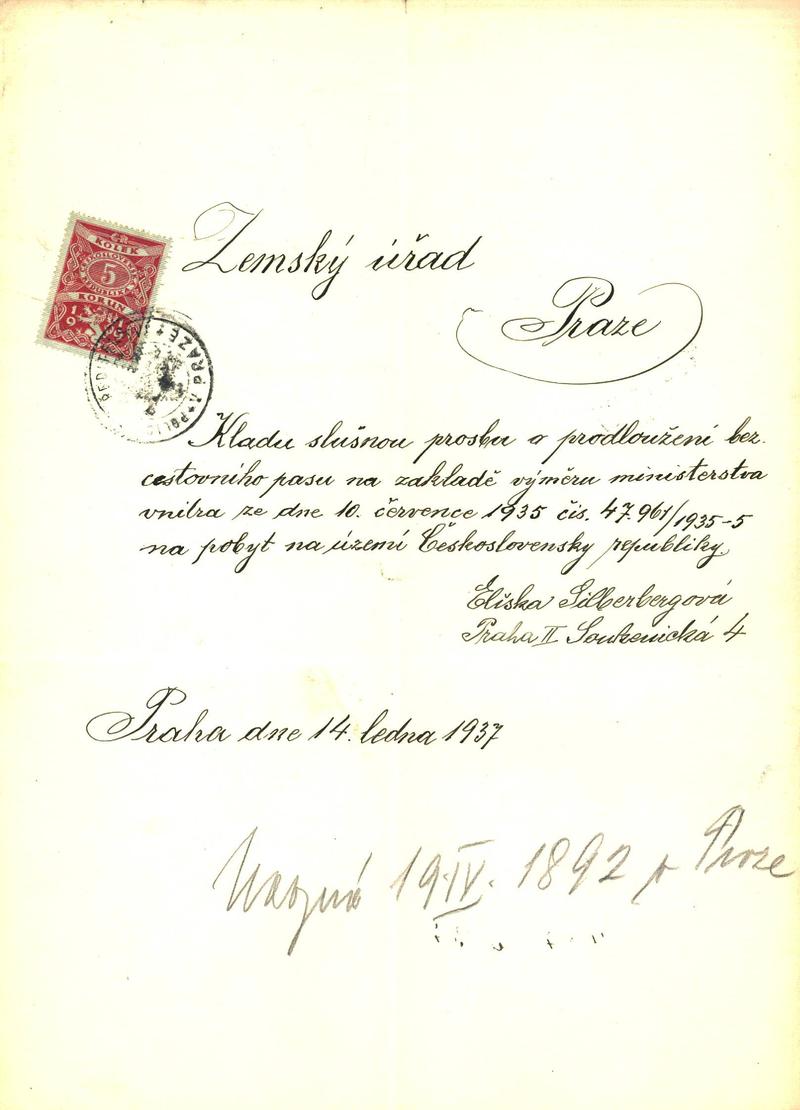 ČR
KOLEK
5
ČESKOSLOVENSKÁ
REPUBLIKA
KORUN
19
POLIC
V PRAZE
Zemský úřad
Praze
Kladu slušnou prosbu o prodloužení bez-
cestovního pasu na zakladě výměru ministerstva
vnitra ze dne 10. července 1935 čís. 47.961/1935-5
na pobyt na území Československy republiky.
Eliska Silberbergová
Praha II Soukenická 4
Praha dne 14. ledna 1937
19.IV. 1892 v Praze